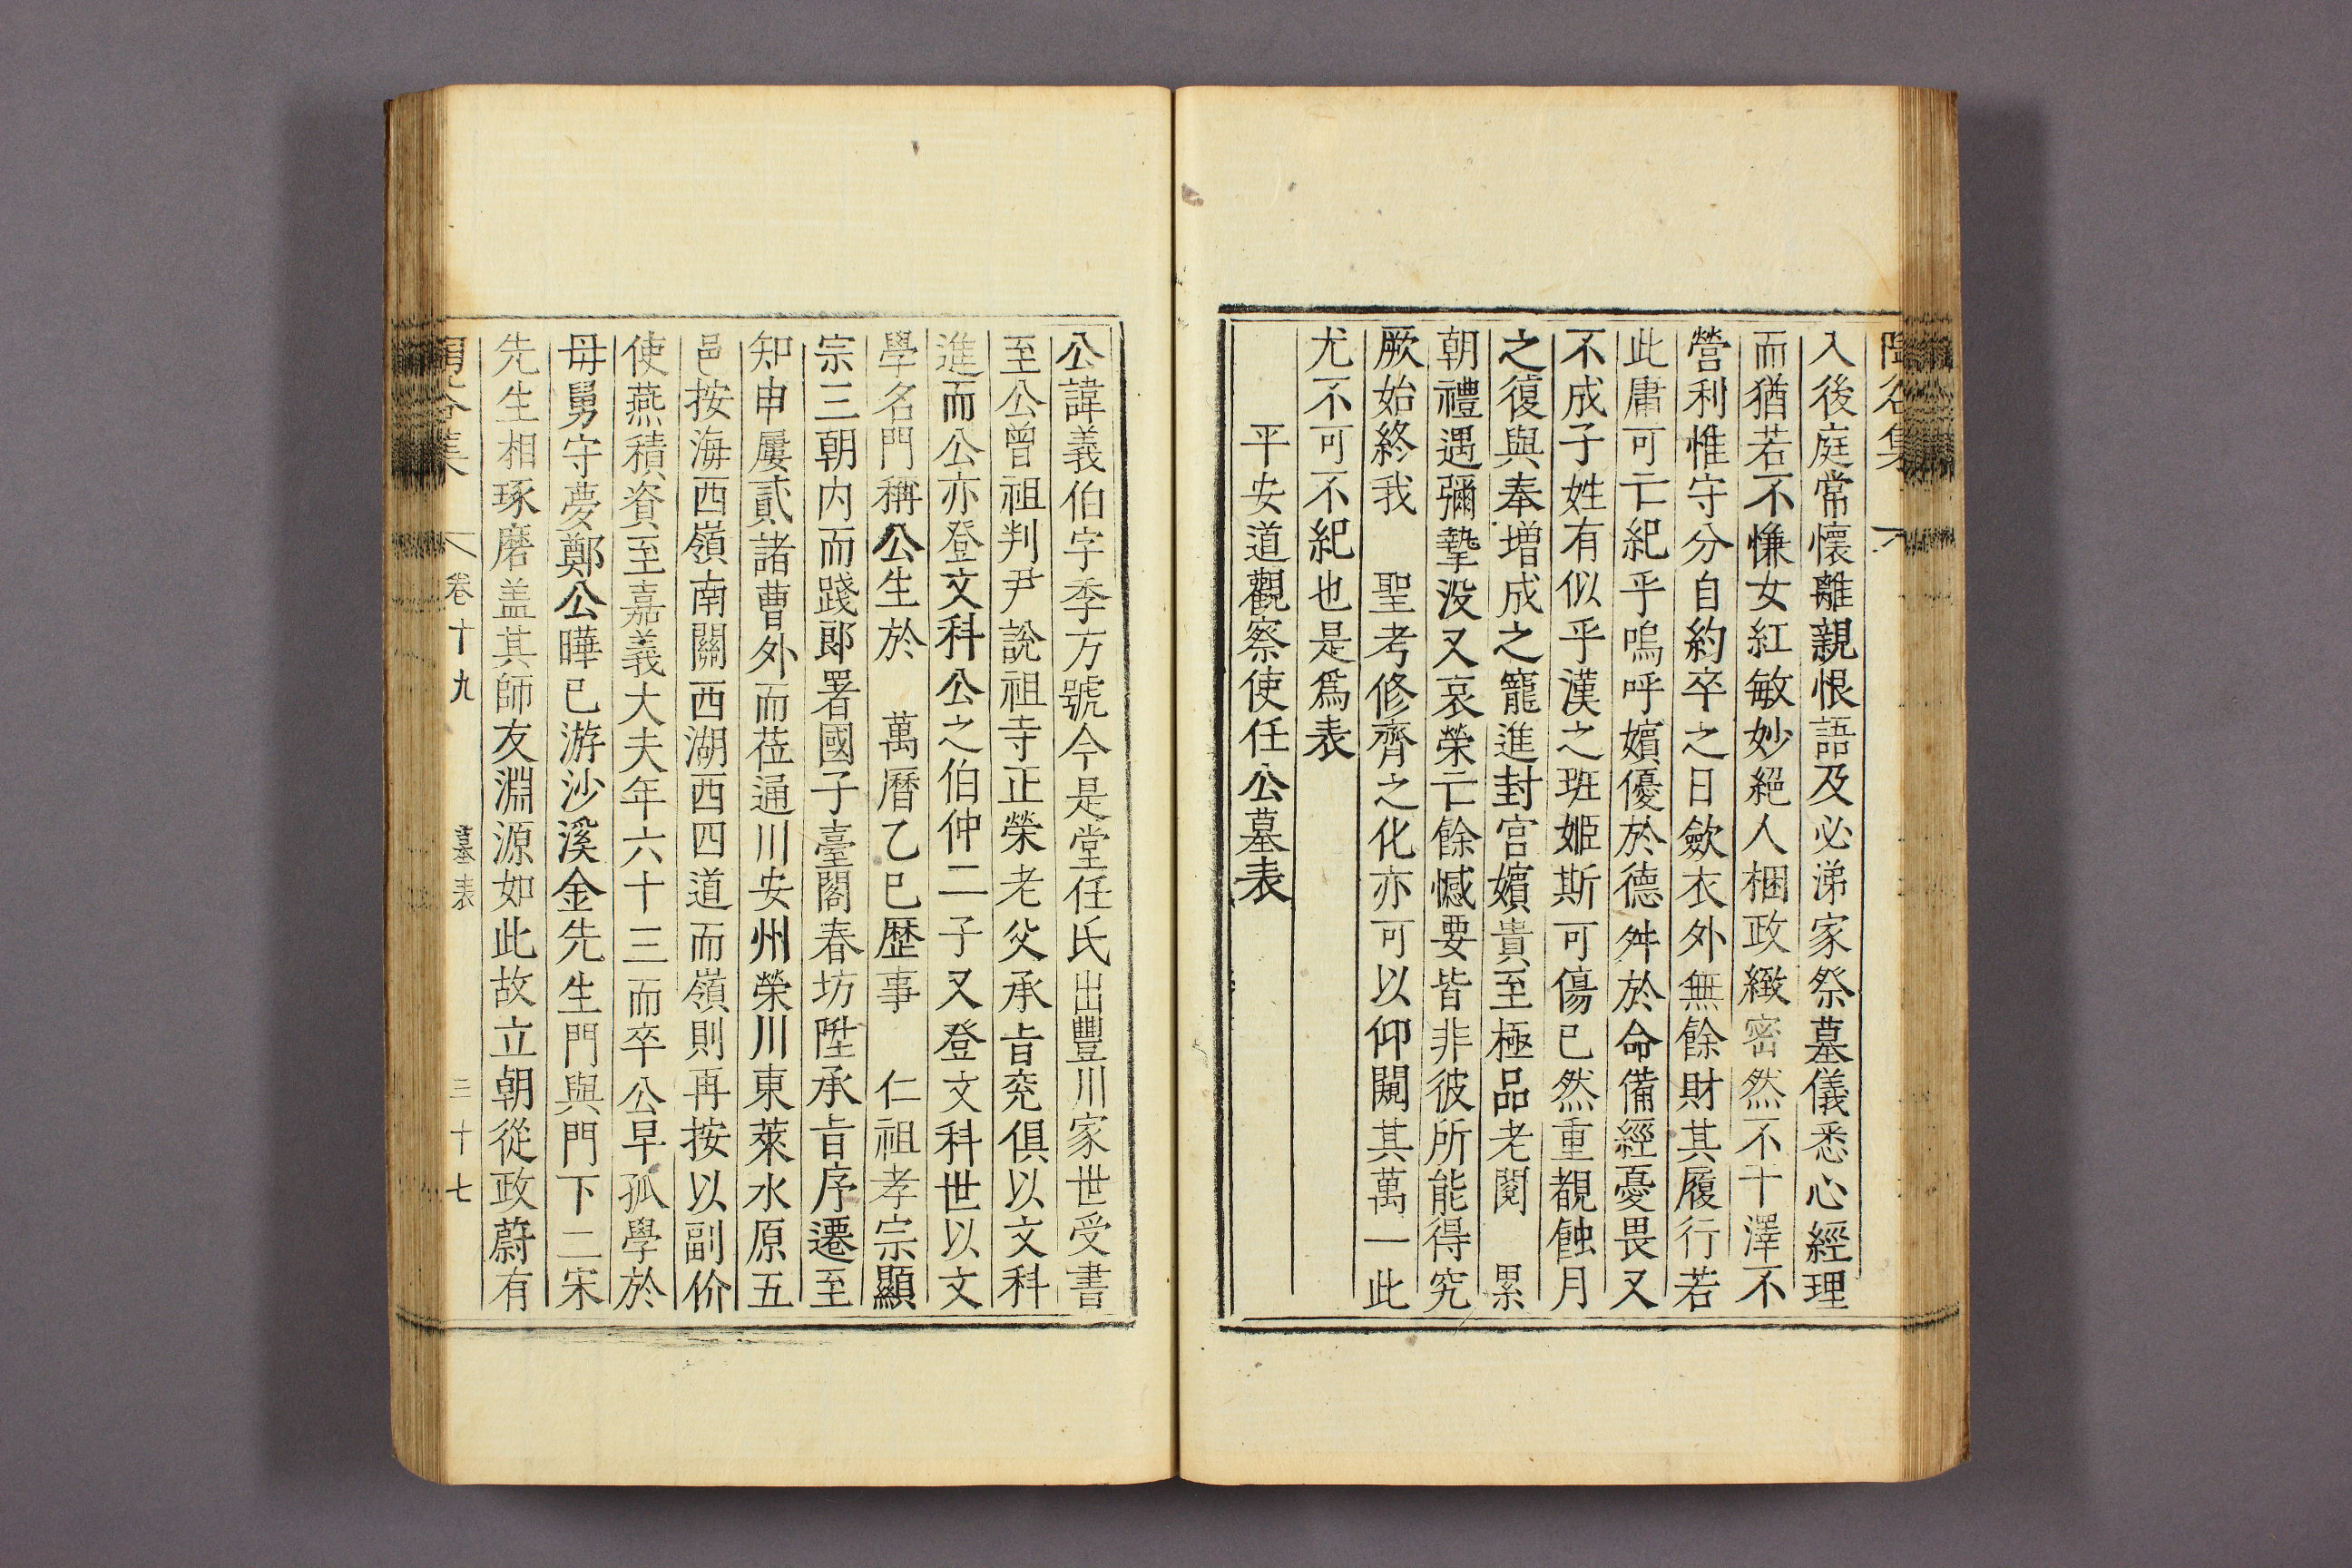 入後庭常懷離親恨語及必涕家祭墓儀悉心經理
而猶若不慊女紅敏妙絕人梱政緻密然不干澤不
營利惟守分自約卒之日歛衣外無餘財其履行若
此庸可亡紀乎嗚呼嬪優於德舛於命備經憂畏又
不成子姓有似乎漢之班姬斯可傷已然重覩蝕月
之復與奉增成之寵進封宮嬪貴至極品老閱 累
朝禮遇彌摯沒又哀榮亡餘憾要皆非彼所能得究
厥始終我 聖考修齊之化亦可以仰闚其萬一此
尤不可不紀也是爲表
平安道觀察使任公墓表
公諱義伯字季方號今是堂任氏出豐川家世受書
至公曾祖判尹說祖寺正榮老父承旨兗俱以文科
進而公亦登文科公之伯仲二子又登文科世以文
學名門稱公生於 萬曆乙巳歷事 仁祖孝宗顯
宗三朝内而踐郞署國子臺閣春坊陞承旨序遷至
知申屢貳諸曹外而莅通川安州榮川東萊水原五
邑按海西嶺南關西湖西四道而嶺則再按以副价
使燕積資至嘉義大夫年六十三而卒公早孤學於
母舅守夢鄭公曄已游沙溪金先生門與門下二宋
先生相琢磨盖其師友淵源如此故立朝從政蔚有
卷十九 墓表 三十七